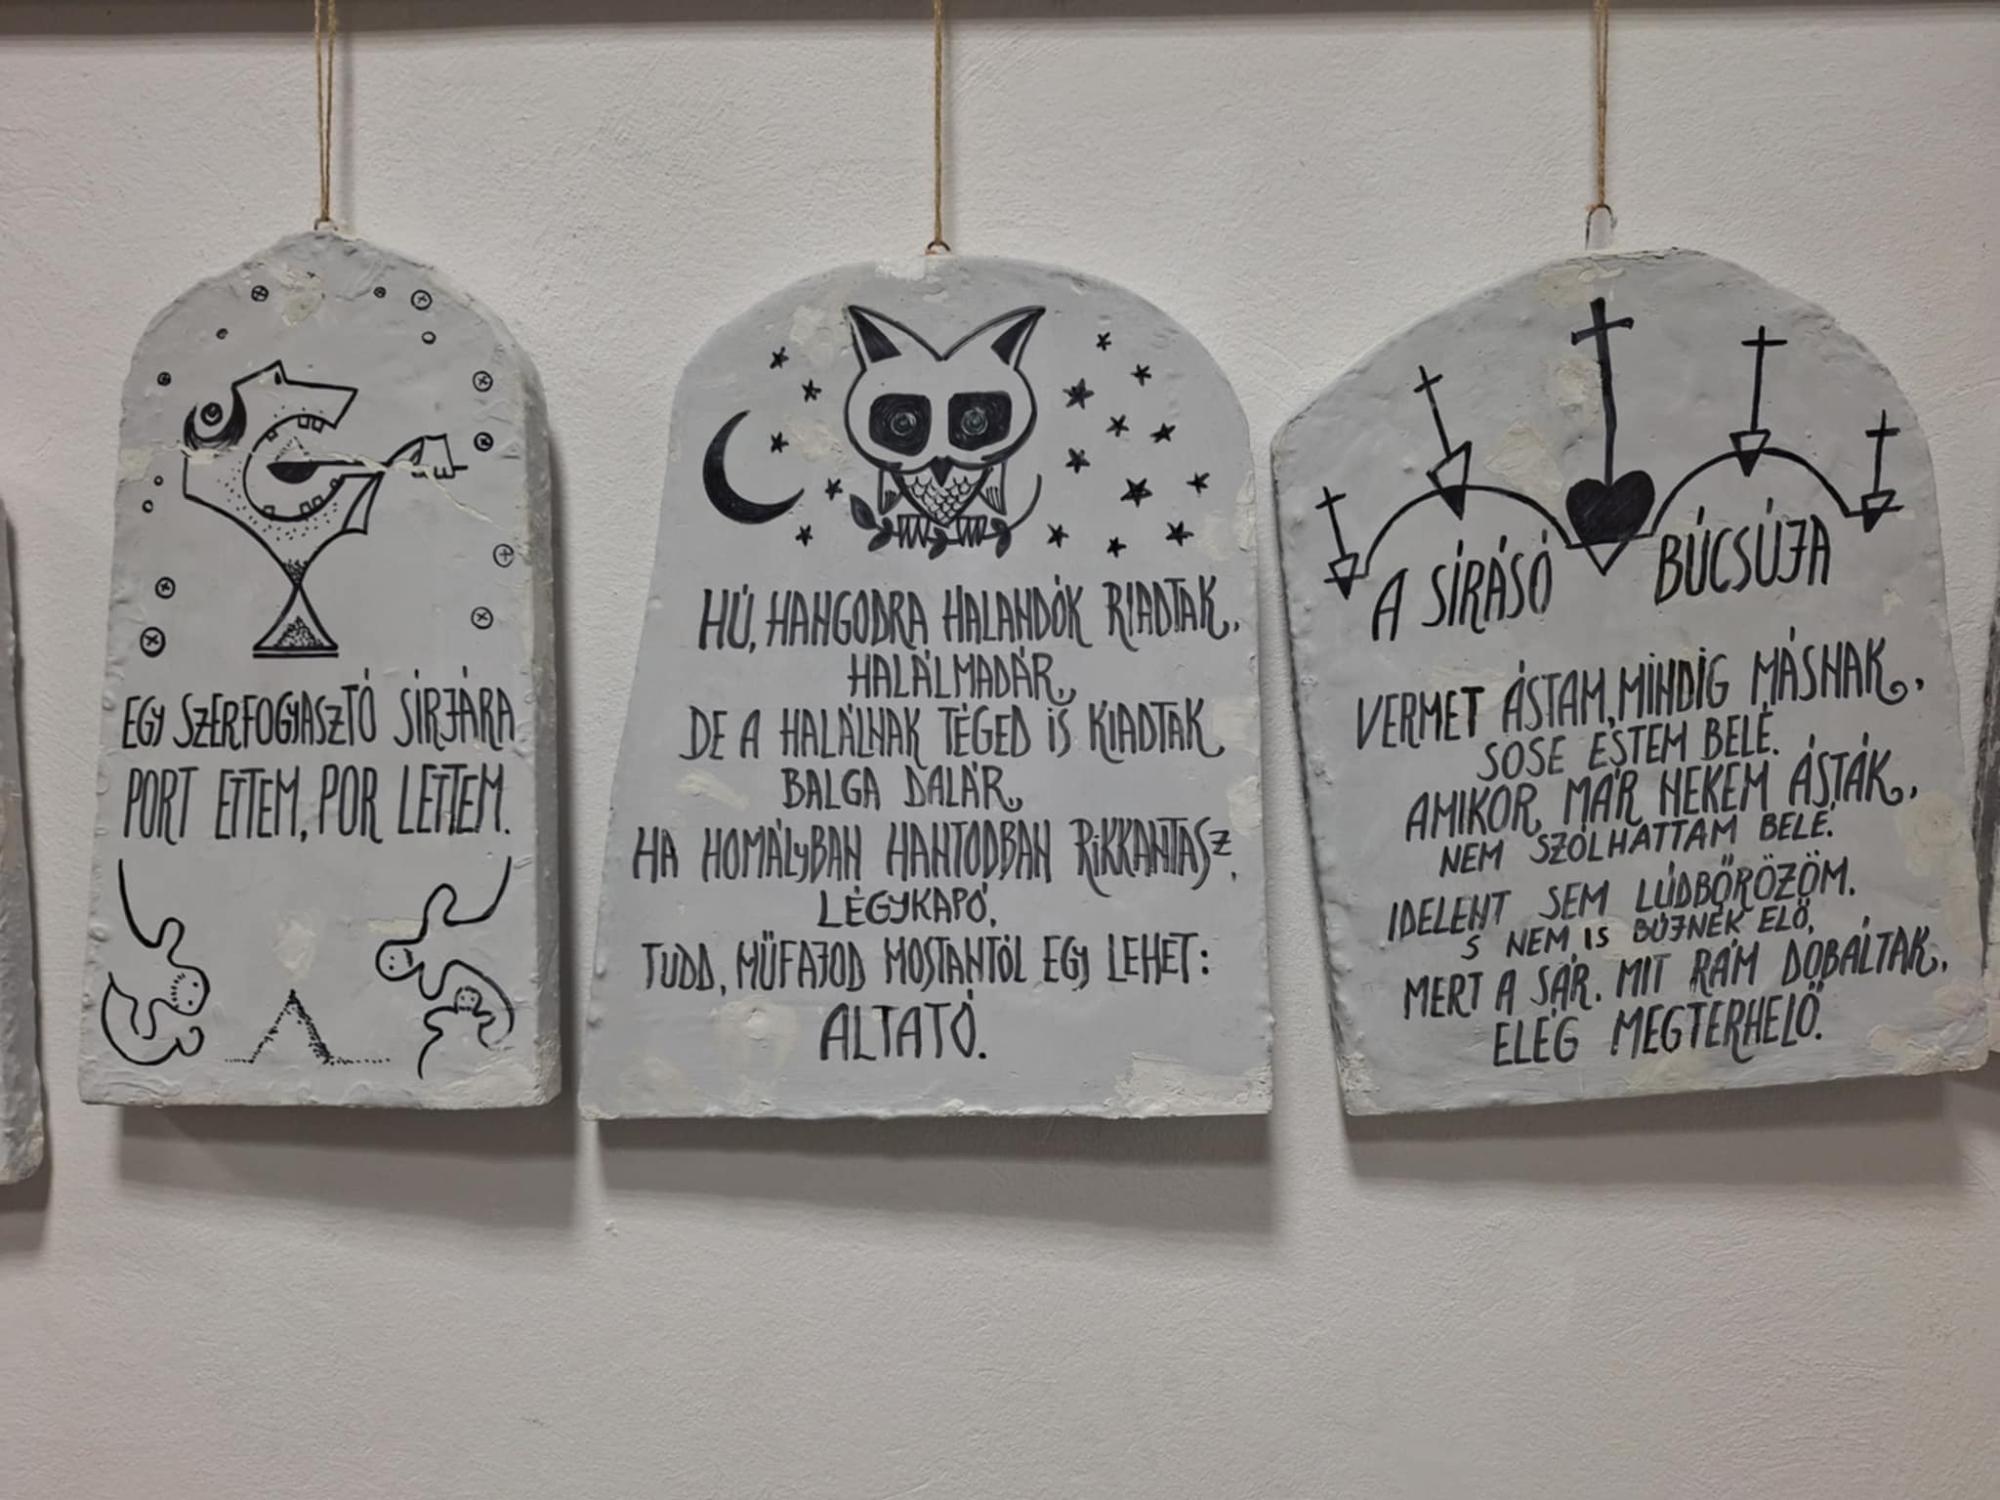 EGY SZERFOGYASZTÓ SÍRJÁRA
PORT ETTEM, POR LETTEM.
HÚ, HANGODRA HALANDÓK RIADTAK,
HALÁLMADÁR,
DE A HALÁLNAK TÉGED IS KIADTAK
BALGA DALÁR,
HA HOMÁLYBAN HANTODBAN RIKKANTASZ,
LÉGYKAPÓ,
TUDD, MŰFAJOD MOSTANTÓL EGY LEHET:
ALTATÓ.
A SÍRÁSÓ BÚCSÚJA
VERMET ÁSTAM, MINDIG MÁSNAK,
SOSE ESTEM BELÉ.
AMIKOR MÁR NEKEM ÁSTÁK,
NEM SZÓLHATTAM BELE.
IDELENT SEM LÚDBŐRÖZÖM.
S NEM IS BÚJNÉK ELŐ,
MERT A SÁR, MIT RÁM DOBÁLTAK,
ELÉG MEGTERHELŐ.